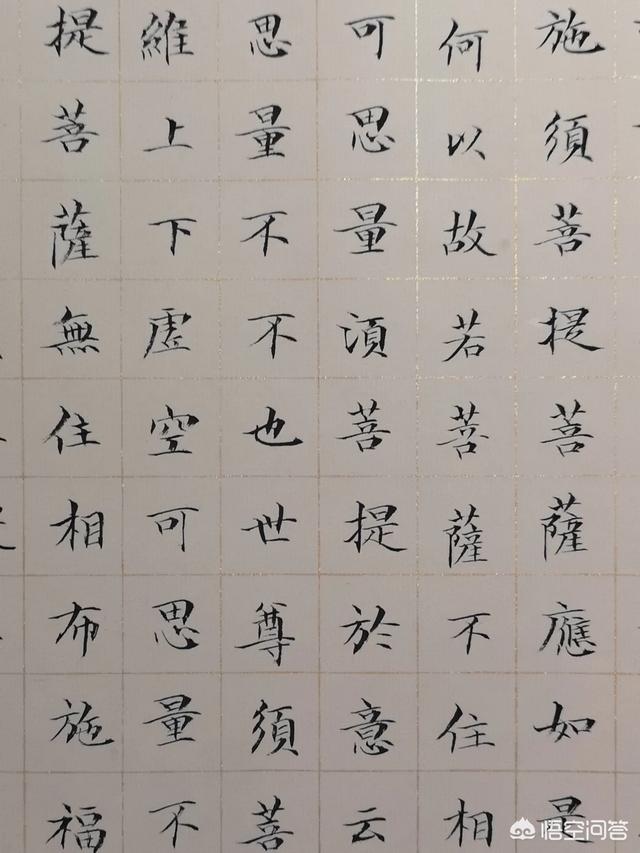 施須菩提菩薩應如是
何以故若菩薩不住相
可思量湏菩提於意云
思量不不也世尊須菩
維上下虛空可思量不
提菩薩無住相布施福
悟空问答